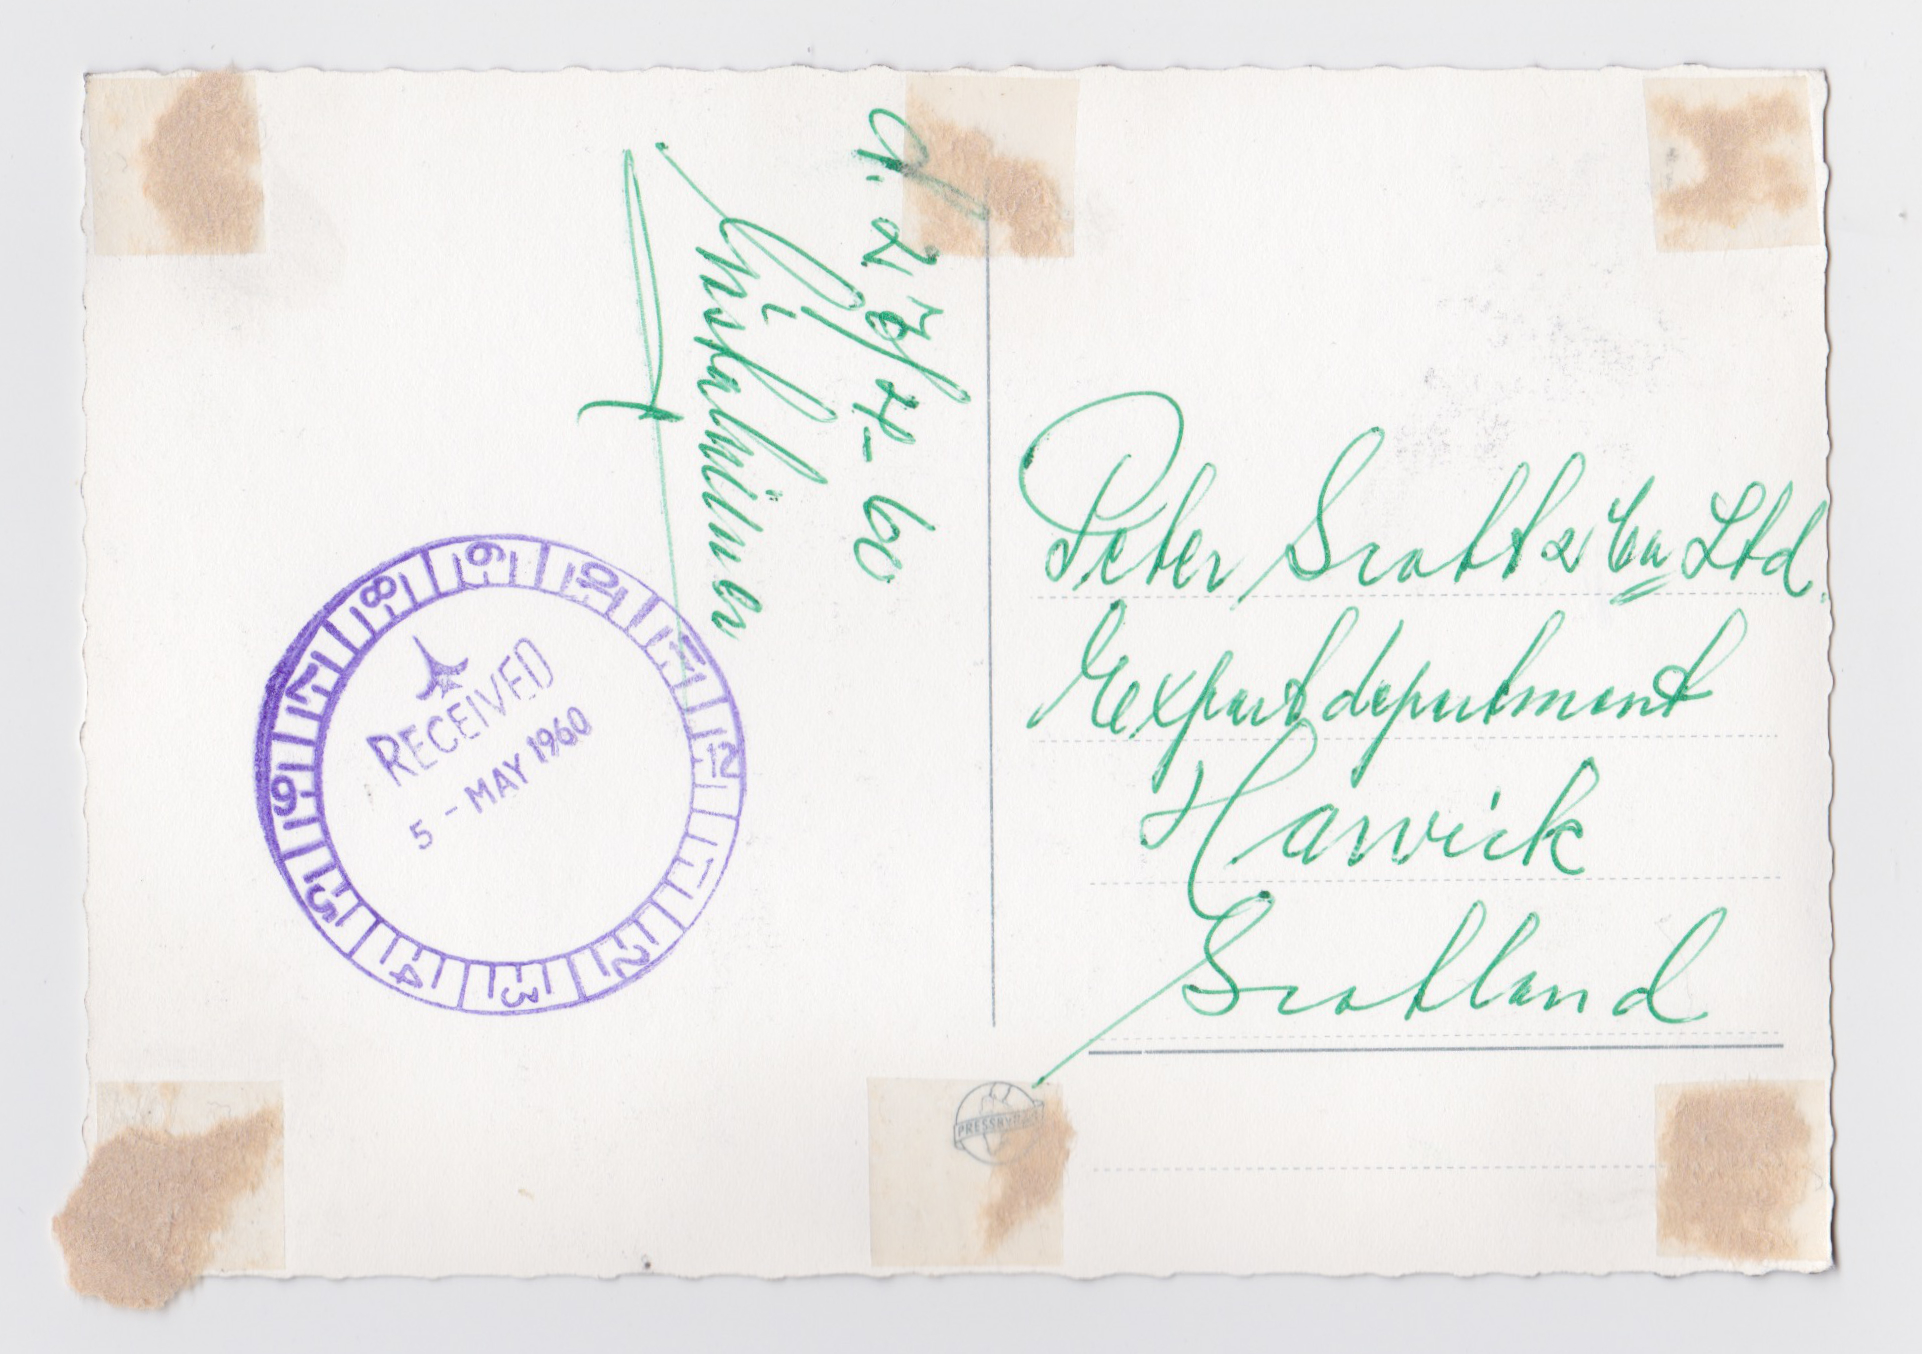 d. 28/4-60
Peter Scott & Co Ltd.
Eexport department
Hawick
Scotland
RECEIVED
5 - MAY 1960
8 9 10 11 12 1 2 3 4 5 6 7
PRESSBYRÅN